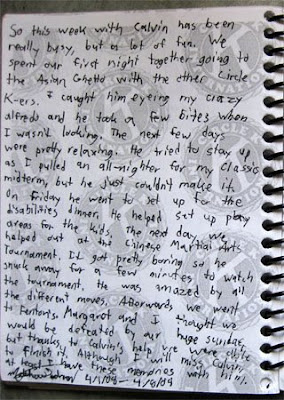 So this week with Calvin has been
really busy, but a lot of fun. We
spent our first night together going to
the Asian Ghetto with the other Circle
K-ers. I caught him eyeing my crazy
alfredo and he took a few bites when
I wasn't looking. The next few days
were pretty relaxing. He tried to stay up
as I pulled an all-nighter for my Classics
midterm, but he just couldn't make it.
On Friday he went to set up for the
disabilities dinner. He helped set up play
areas for the kids. The next day we
helped out at the Chinese Martial Arts
Tournament. It got pretty boring so he
snuck away for a few minutes to watch
the tournament. He was amazed by all
the different moves. Afterwards, we went
to Fenton's. Margaret and I thought we
would be defeated by our huge sundae,
but thanks to Calvin's help, we were able
to finish it. Although I will miss Calvin,
at least I have these memories with him.
4/1/09 - 4/8/09